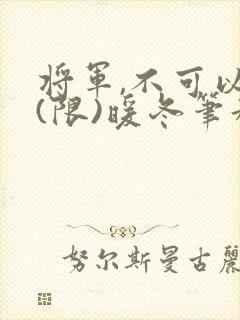 將軍,不可以
(限)暖冬筆
努尔斯曼古麗